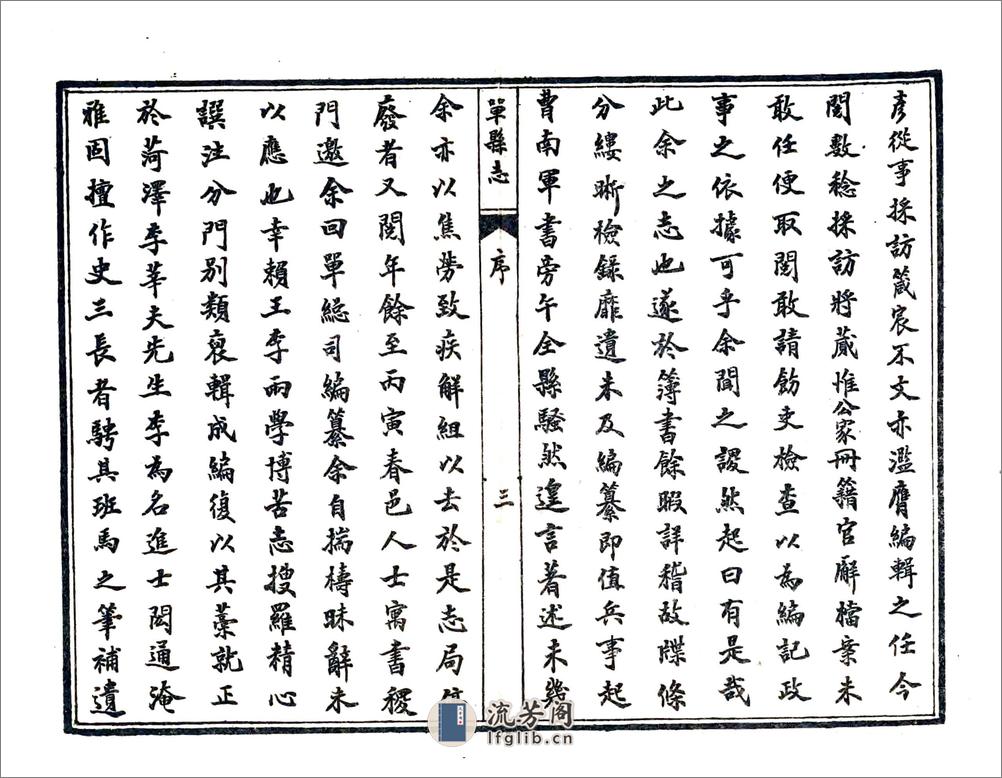 彥從事採訪箴宸不文亦濫膺編輯之任今
閱數稔採訪將蕆惟公家冊籍官廨檔案未
敢任便取閱敢請飭吏檢查以為編記政
事之依據可乎余聞之謖然起曰有是哉
此余之志也遂於簿書餘暇詳稽故牒條
分縷晰檢錄靡遺未及編纂即值兵事起
曹南軍書旁午全縣騷然遑言著述未幾
單縣志
序
三
余亦以焦勞致疾解組以去於是志局
廢者又閱年餘至丙寅春邑人士寓書稷
門邀余回單總司編纂余自揣檮昧辭未
以應也幸賴王李兩學博苦志搜羅精心
譔注分門別類裒輯成編復以其藁就正
於菏澤李莘夫先生李為名進士閎通淹
雅固擅作史三長者騁其班馬之筆補遺
流芳閣
lfglib.cn